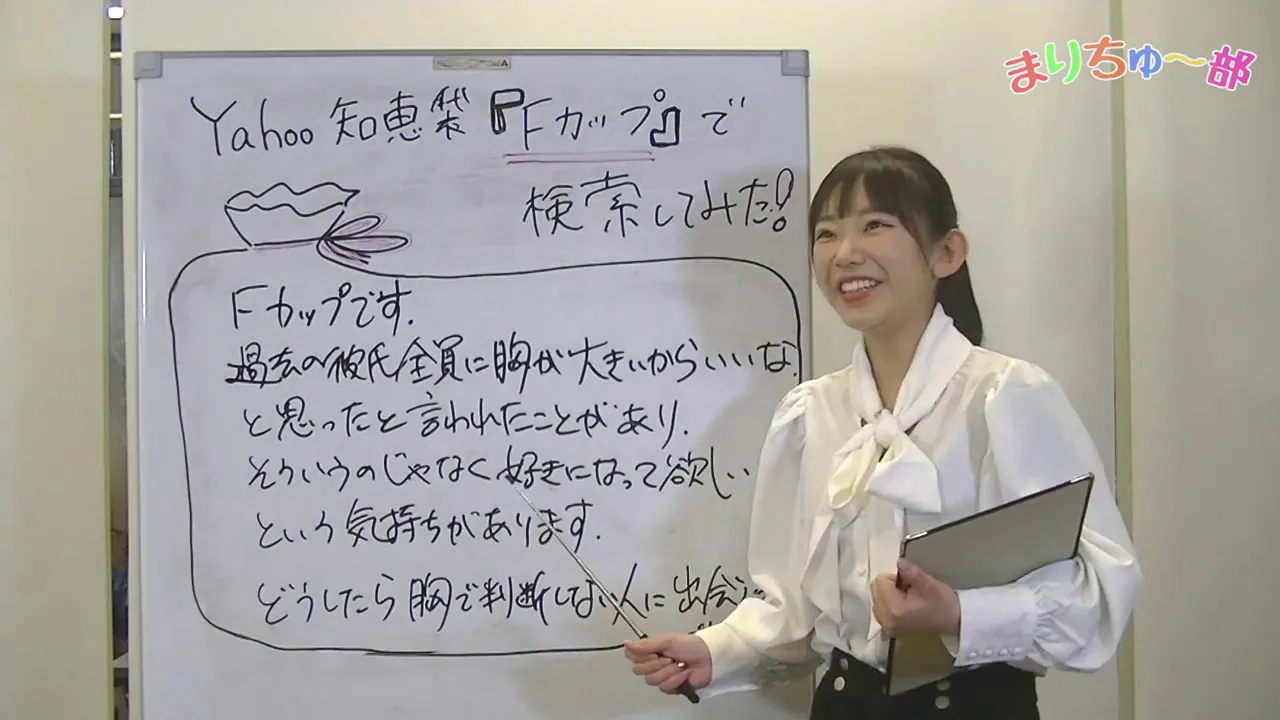 まりちゅ〜部
Yahoo知恵袋『Fカップ』で
検索してみた!
Fカップです.
過去の彼氏全員に胸が大きいからいいな
と思ったと言われたことがあり.
そういうのじゃなく好きになって欲しい
という気持ちがあります.
どうしたら胸で判断しない人に出会